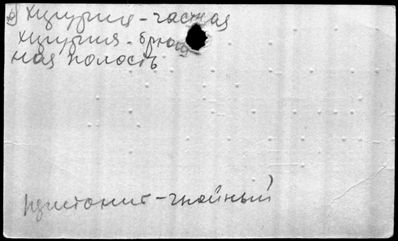 Хирургия - частная
Хирургия - брюш
ная полость
Перитонит - гнойный